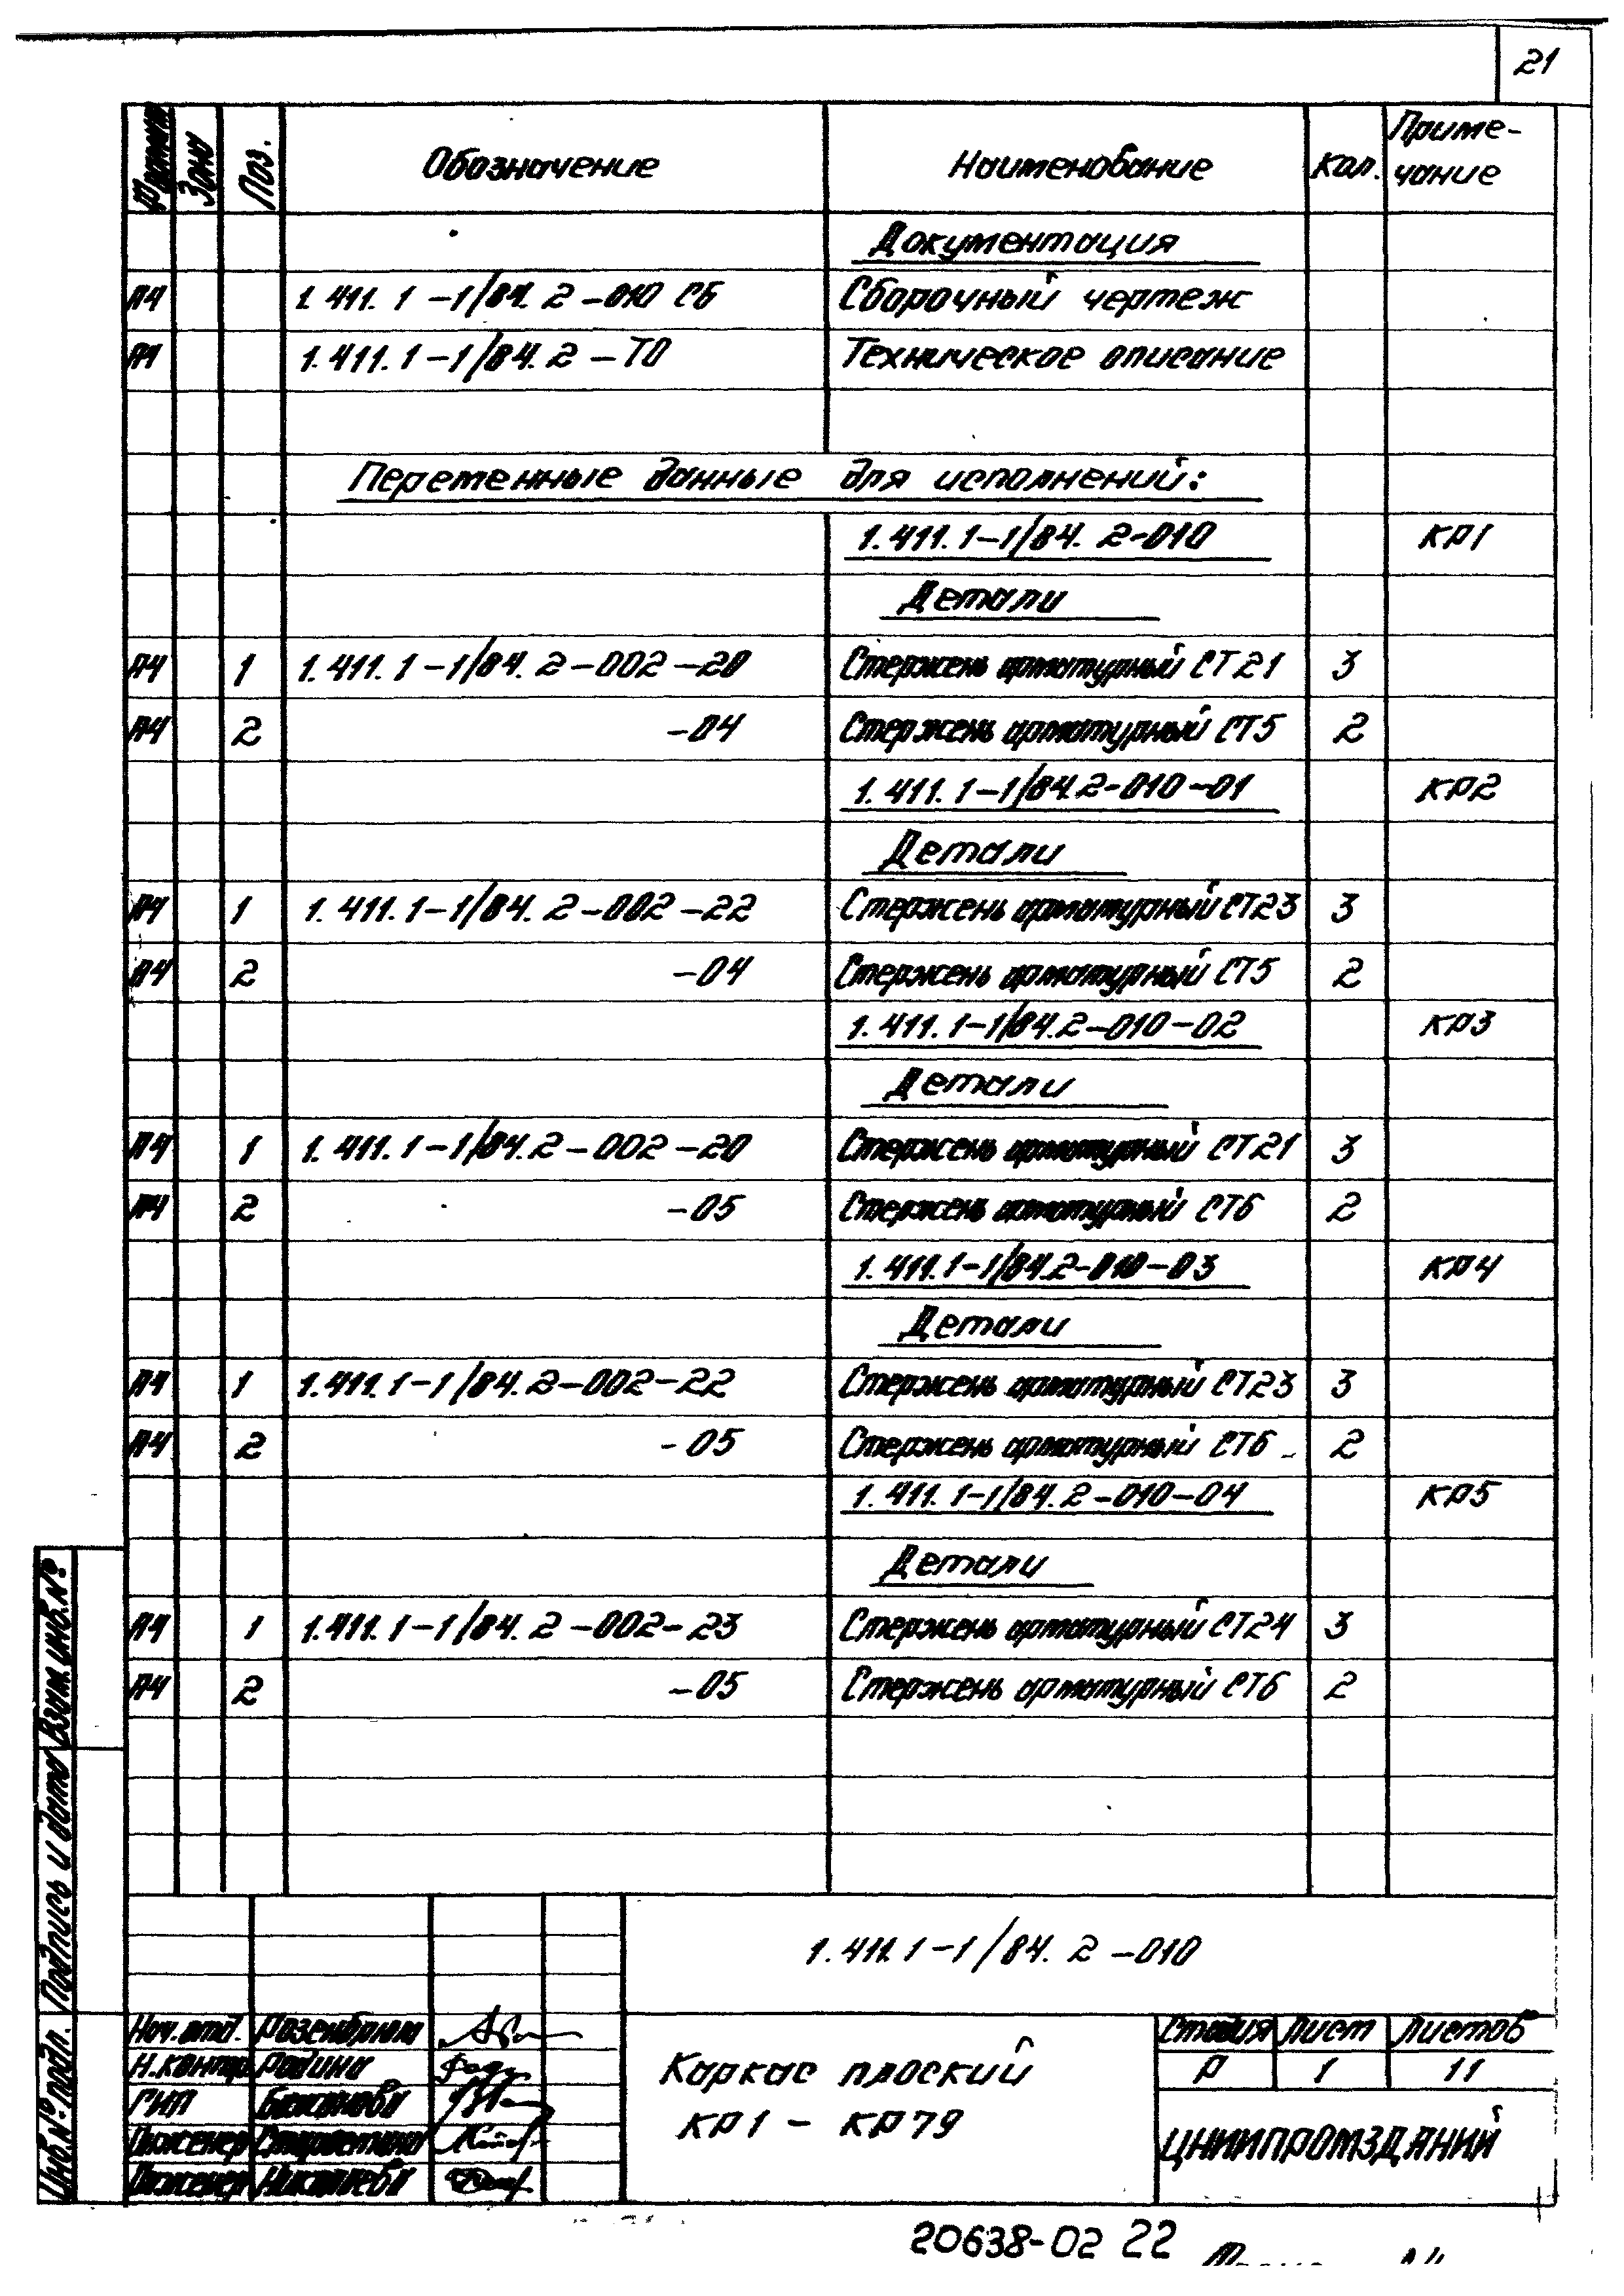 21
Формат Зона Поз. Обозначение Наименование Кол. Приме-
чание
Документация
А4 1.411.1-1/84.2-010 СБ Сборочный чертеж
А4 1.411.1-1/84.2-ТО Техническое описание
Переменные данные для исполнений:
1.411.1-1/84.2-010 КР1
Детали
А4 1 1.411.1-1/84.2-002-20 Стержень арматурный СТ21 3
А4 2 -04 Стержень арматурный СТ5 2
1.411.1-1/84.2-010-01 КР2
Детали
А4 1 1.411.1-1/84.2-002-22 Стержень арматурный СТ23 3
А4 2 -04 Стержень арматурный СТ5 2
1.411.1-1/84.2-010-02 КР3
Детали
А4 1 1.411.1-1/84.2-002-20 Стержень арматурный СТ21 3
А4 2 -05 Стержень арматурный СТ6 2
1.411.1-1/84.2-010-03 КР4
Детали
А4 1 1.411.1-1/84.2-002-22 Стержень арматурный СТ23 3
А4 2 -05 Стержень арматурный СТ6 2
1.411.1-1/84.2-010-04 КР5
Детали
А4 1 1.411.1-1/84.2-002-23 Стержень арматурный СТ24 3
А4 2 -05 Стержень арматурный СТ6 2
Взам. инв. №
Подпись и дата
Инв. № подл.
1.411.1-1/84.2-010
Нач. отд. Розенблюм
Н. контр. Родина
ГИП Бажанова
Инженер
Инженер
Каркас плоский
КР1 - КР79
Стадия Лист Листов
Р 1 11
ЦНИИПРОМЗДАНИЙ
20638-02 22